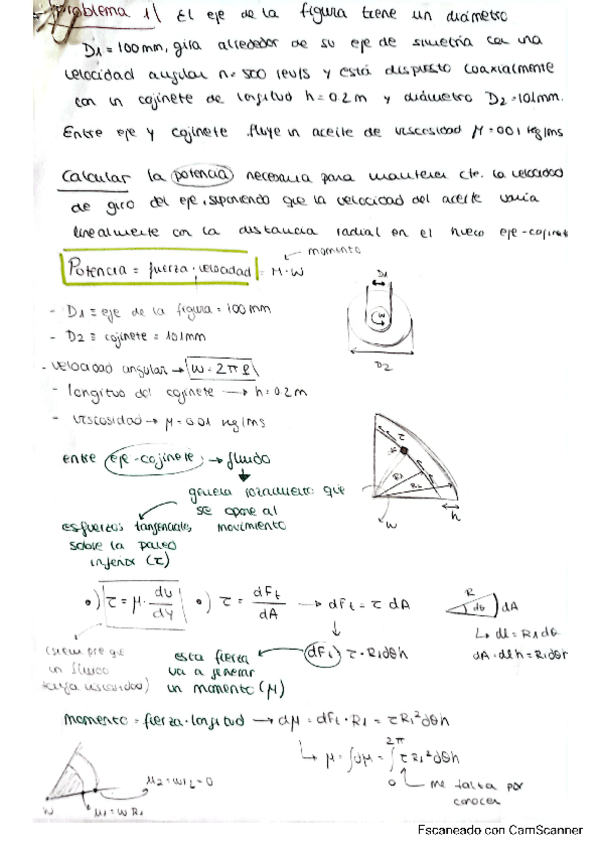 Problema 1 | El eje de la figura tiene un diámetro
D1 = 100mm, gira alrededor de su eje de simetría con una
velocidad angular n = 500 rev/s y está dispuesto coaxialmente
con un cojinete de longitud h = 0.2 m y diámetro D2 = 101mm.
Entre eje y cojinete fluye un aceite de viscosidad μ = 0.01 kg/ms
Calcular la potencia necesaria para mantener cte. la velocidad
de giro del eje, suponiendo que la velocidad del aceite varía
linealmente con la distancia radial en el hueco eje-cojinete
momento
Potencia = fuerza · velocidad = M · W
D1
W
D2
- D1 ≡ eje de la figura = 100mm
- D2 ≡ cojinete = 101mm
- velocidad angular → W = 2π f
- longitud del cojinete → h = 0.2 m
- viscosidad → μ = 0.01 kg/ms
τ
R1
R2
h
W
entre eje-cojinete → fluido
genera rozamiento que
se opone al
movimiento
esfuerzos tangenciales
sobre la pared
inferior (τ)
•) τ = μ · du/dy •) τ = dFt/dA → dFt = τ dA
R
dθ
dA
↳ dl = R1dθ
(siempre que
un fluido
tenga viscosidad)
esta fuerza
va a generar
un momento (μ)
dFt = τ · R1dθh
momento = fuerza · longitud → dμ = dFt · R1 = τR1²dθh
↳ μ = ∫dμ = ∫ τR1²dθh
2π
0
me falta por
conocer
W
μ1 = WR1
Escaneado con CamScanner